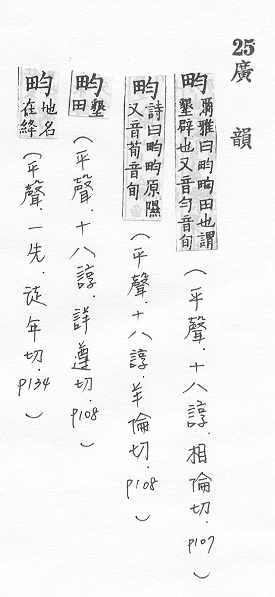 25廣韻
畇爾雅曰畇畇田也謂墾辟也又音勻音旬(平聲.十八諄.相倫切.P107)
畇詩曰畇畇原隰又音荀音旬(平聲.十八諄.羊倫切.P108)
畇墾田(平聲.十八諄.詳遵切.P108)
畇地名在絳(平聲.一先.徒年切.P134)